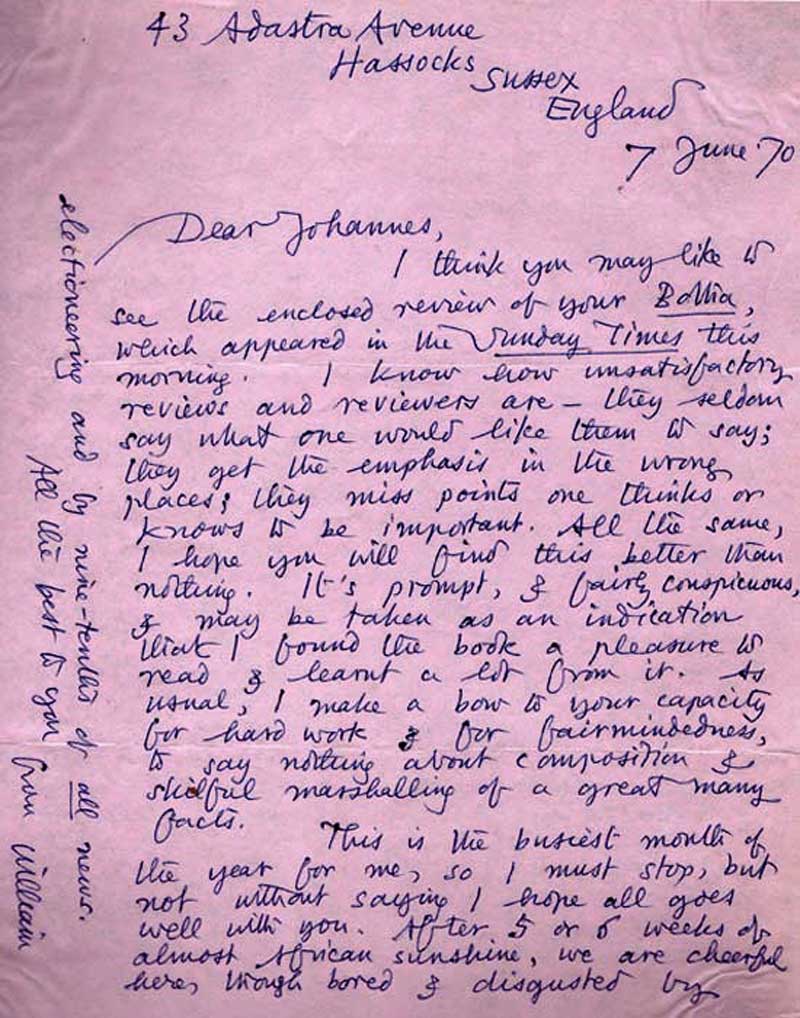 43 Adastra Avenue
Hassocks
Sussex
England
7 June '70
Dear Johannes,
I think you may like to
see the enclosed review of your Bottia,
which appeared in the Sunday Times this
morning. I know how unsatisfactory
reviews and reviewers are – they seldom
say what one would like them to say;
they get the emphasis in the wrong
places; they miss points one thinks or
knows to be important. All the same,
I hope you will find this better than
nothing. It's prompt, & fairly conspicuous,
& may be taken as an indication
that I found the book a pleasure to
read & learnt a lot from it. As
usual, I make a bow to your capacity
for hard work & for fairmindedness,
to say nothing about composition &
skilful marshalling of a great many
facts.
This is the busiest month of
the year for me, so I must stop, but
not without saying I hope all goes
well with you. After 5 or 6 weeks of
almost African sunshine, we are cheerful
here, though bored & disgusted by
electioneering and by nine-tenths of all news.
All the best to you from William